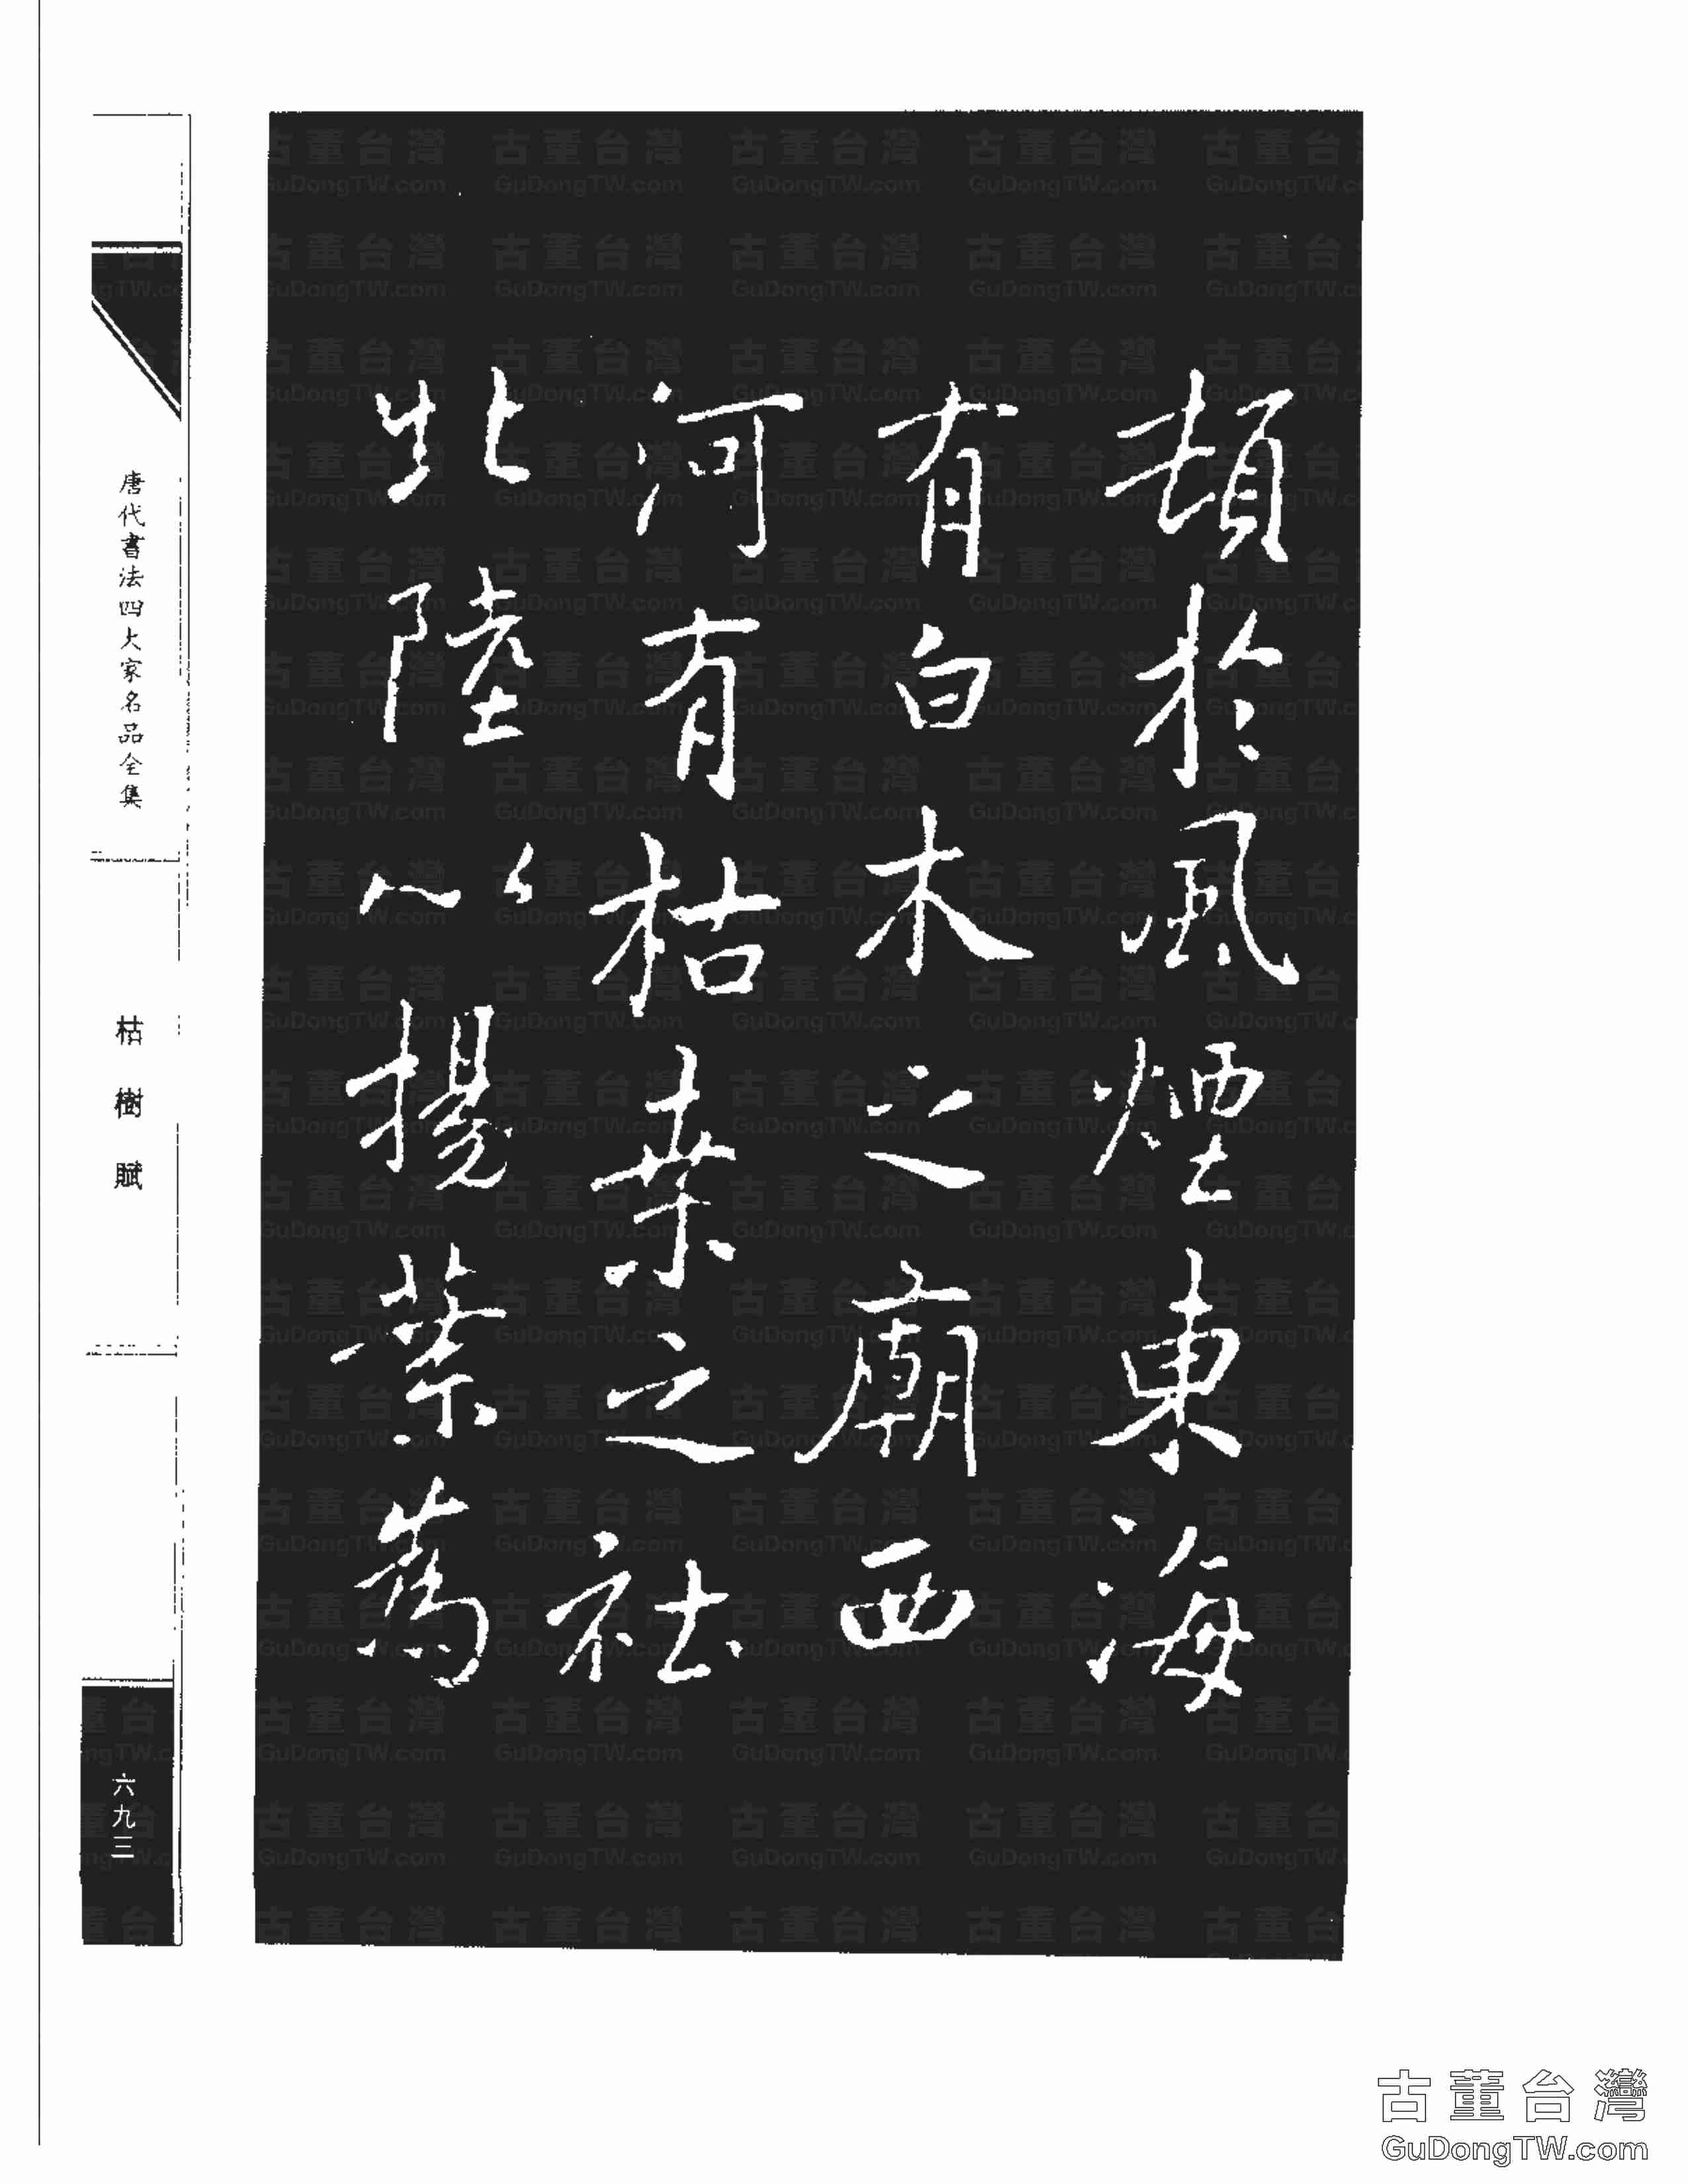 頓於風煙東海
有白木之廟西
河有枯桑之社
北陸以楊葉為
唐代書法四大家名品全集
枯樹賦
六九三
古董台灣
GuDongTW.com